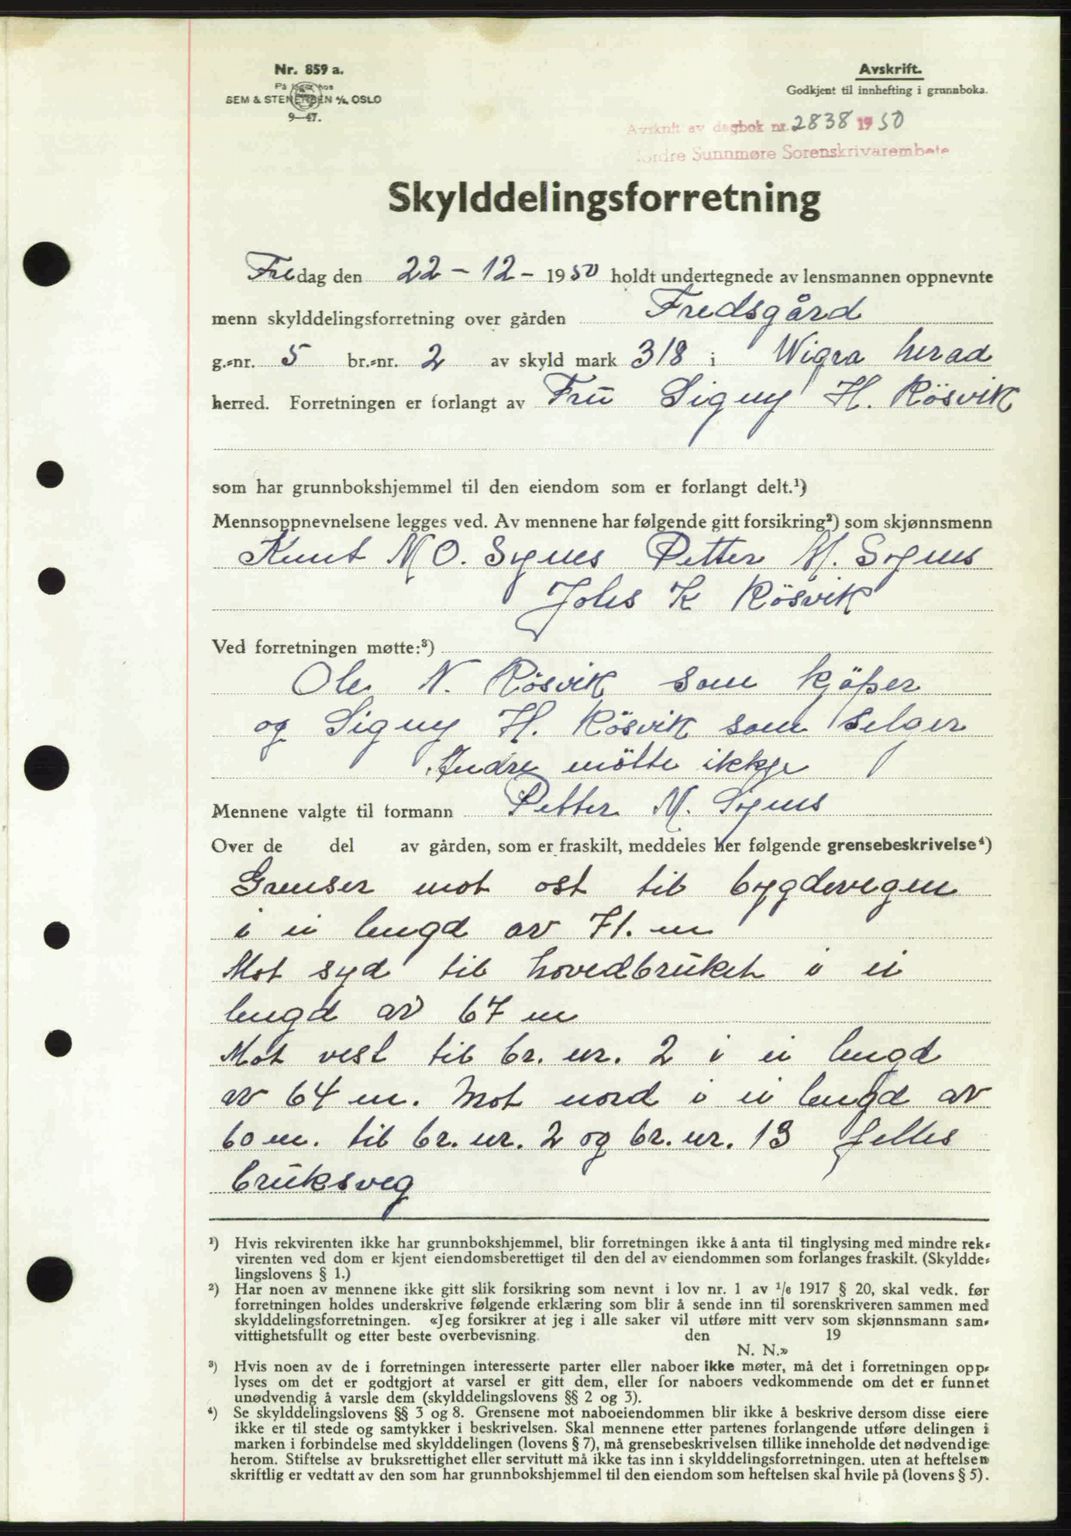 Nr. 859 a.
På lager hos
SEM & STENERSEN A/S, OSLO
9—47.
Avskrift.
Godkjent til innhefting i grunnboka.
Avskrift av dagbok nr. 2838 1950
Nordre Sunnmøre Sorenskrivarembete
Skylddelingsforretning
Fredag den 22 - 12 - 1950 holdt undertegnede av lensmannen oppnevnte
menn skylddelingsforretning over gården Fredsgård
g.-nr. 5 br.-nr. 2 av skyld mark 318 i Wigra herad
herred. Forretningen er forlangt av Frü Signy H. Rösvik
som har grunnbokshjemmel til den eiendom som er forlangt delt.¹)
Mennsoppnevnelsene legges ved. Av mennene har følgende gitt forsikring²) som skjønnsmenn
Knut N O. Sygnes Petter N. Sygnes
Johs K Rösvik
Ved forretningen møtte:³)
Ole N. Rösvik som kjöper
og Signy H. Rösvik som selger
Andre mötte ikkje
Mennene valgte til formann Petter N. Sygnes
Over de del av gården, som er fraskilt, meddeles her følgende grensebeskrivelse⁴)
Grenser mot ost til bygdevegen
i ei lengd av 71. m
Mot syd til hovedbrüket i ei
lengd av 67 m
Mot vest til br. nr. 2 i ei lengd
av 64 m. Mot nord i ei lengd av
60 m. til br. nr. 2 og br. nr. 13 felles
brüksveg
¹) Hvis rekvirenten ikke har grunnbokshjemmel, blir forretningen ikke å anta til tinglysing med mindre rek-
virenten ved dom er kjent eiendomsberettiget til den del av eiendommen som forlanges fraskilt. (Skyldde-
lingslovens § 1.)
²) Har noen av mennene ikke gitt slik forsikring som nevnt i lov nr. 1 av 1/6 1917 § 20, skal vedk. før
forretningen holdes underskrive følgende erklæring som blir å sende inn til sorenskriveren sammen med
skylddelingsforretningen. «Jeg forsikrer at jeg i alle saker vil utføre mitt verv som skjønnsmann sam-
vittighetsfullt og etter beste overbevisning. den 19
N. N.»
³) Hvis noen av de i forretningen interesserte parter eller naboer ikke møter, må det i forretningen opp-
lyses om det er godtgjort at varsel er gitt dem, eller for naboers vedkommende om det er funnet
unødvendig å varsle dem (skylddelingslovens §§ 2 og 3).
⁴) Se skylddelingslovens §§ 3 og 8. Grensene mot naboeiendommen blir ikke å beskrive dersom disse eiere
ikke er til stede og samtykker i beskrivelsen. Skal mennene etter partenes forlangende utføre delingen i
marken i forbindelse med skylddelingen (lovens § 7), må grensebeskrivelsen tillike inneholde det nødvendige
herom. Stiftelse av bruksrettighet eller servitutt må ikke tas inn i skylddelingsforretningen. uten at heftelsen
skriftlig er vedtatt av den som har grunnbokshjemmel til den eiendom som heftelsen skal hvile på (lovens § 5).